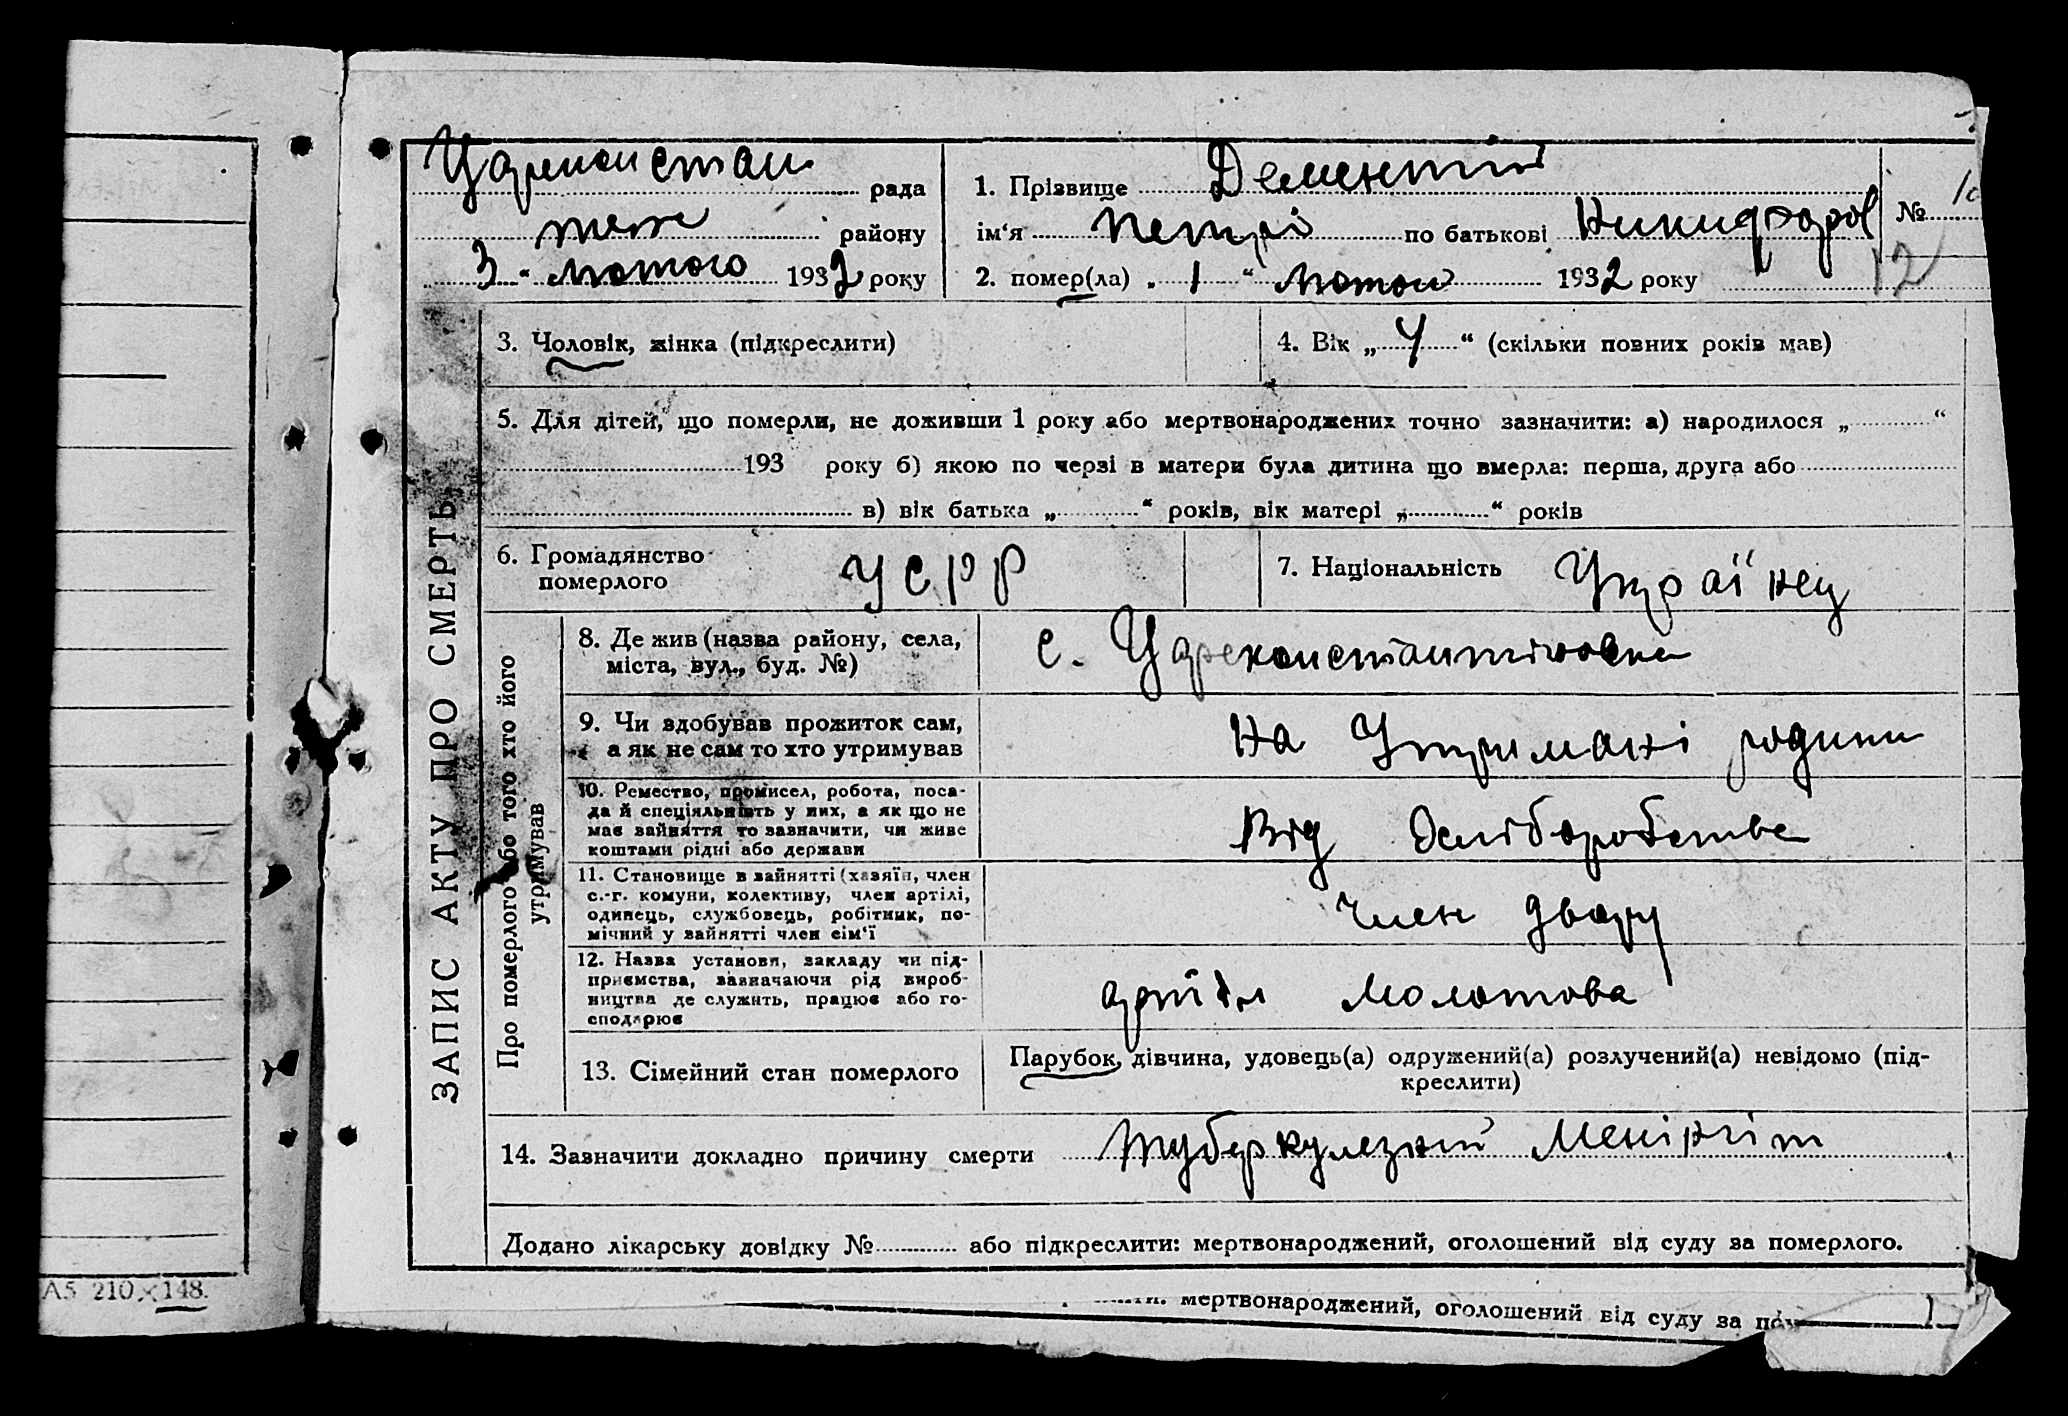 Цареконстан рада
теж району
3 " лютого 1932 року
1. Прізвище Дементій
ім'я Петрі по батькові Никифоров
2. помер(ла) „ 1 " лютого 1932 року
№ 10
12
ЗАПИС АКТУ ПРО СМЕРТЬ
3. Чоловік, жінка (підкреслити)
4. Вік „ 4 “ (скільки повних років мав)
5. Для дітей, що померли, не доживши 1 року або мертвонароджених точно зазначити: а) народилося „ “
193 року б) якою по черзі в матери була дитина що вмерла: перша, друга або
в) вік батька „ “ років, вік матері „ “ років
6. Громадянство
померлого
УСРР
7. Національність Українец
Про померлого або того хто його
утримував
8. Де жив (назва району, села,
міста, вул., буд. №)
с. Цареконстантіновка
9. Чи здобував прожиток сам,
а як не сам то хто утримував
На Утримані родини
10. Ремество, промисел, робота, поса-
да й спеціяльність у них, а як що не
має зайняття то зазначити, чи живе
коштами рідні або держави
Від хліборобства
11. Становище в зайнятті (хазяїн, член
с.-г. комуни, колективу, член артілі,
одинець, службовець, робітник, по-
мічний у зайнятті член сім'ї
Член двору
12. Назва установи, закладу чи під-
приємства, зазначаючи рід вироб-
ництва де служить, працює або го-
сподарює
артіль Молотова
13. Сімейний стан померлого
Парубок, дівчина, удовець(а) одружений(а) розлучений(а) невідомо (під-
креслити)
14. Зазначити докладно причину смерти Туберкулезний Менінгіт
Додано лікарську довідку № або підкреслити: мертвонароджений, оголошений від суду за померлого.
А5 210×148.
мертвонароджений, оголошений від суду за